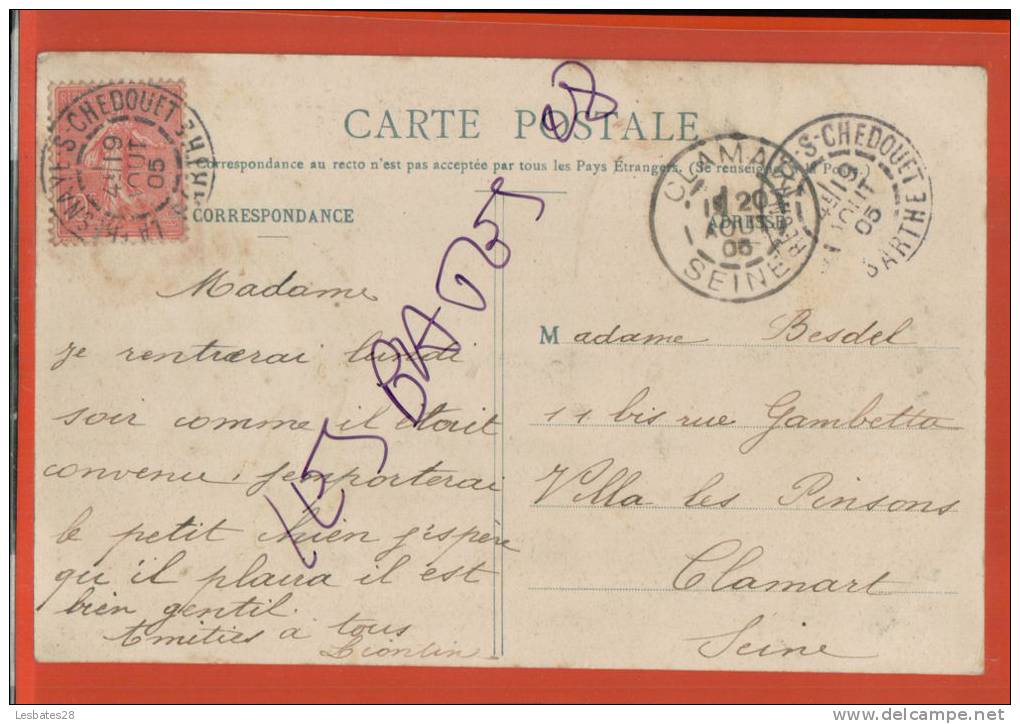 CARTE POSTALE
Correspondance au recto n'est pas acceptée par tous les Pays Étrangers. (Se renseigner à la Poste.)
CORRESPONDANCE
ADRESSE
S-CHEDOUET
SARTHE
4E/19
AOUT
05
CLAMART
20
AOUT
05
SEINE
S-CHEDOUET
SARTHE
4E/19
AOUT
05
Madame
je rentrerai lundi
soir comme il était
convenu, j'emporterai
le petit chien j'espère
qu'il plaira il est
bien gentil.
Amitiés à tous
Madame Besdel
11 bis rue Gambetta
Villa les Pinsons
Clamart
Seine
Lesbates28
www.delcampe.net